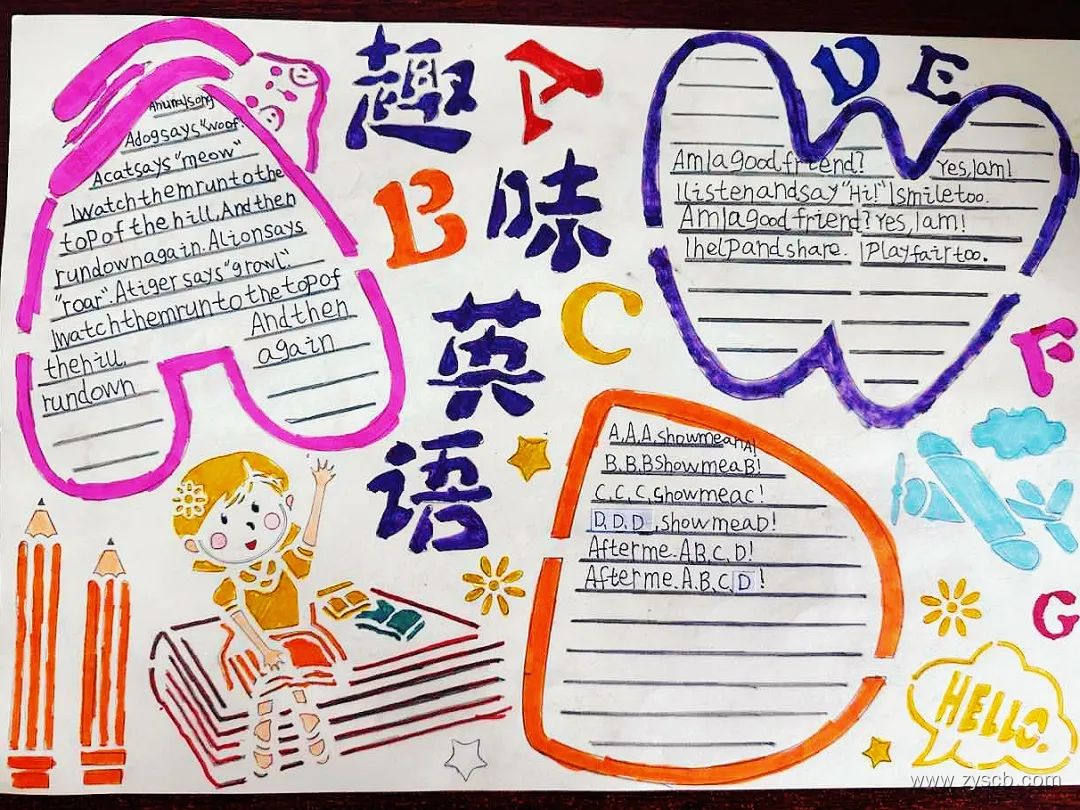 趣味英语
A
B
C
D E
F
G
Animalsong
Adogsays"woof"
Acatsays"meow"
Iwatchthemruntothe
toPofthehill,Andthen
rundownagain.Alionsays
"roar".Atigersays"growl."
IwatchthemruntothetoPof
thehill Andthen
rundown again
AmIagoodfriend? Yes,Iam!
Ilistenandsay"Hi!"Ismiletoo.
AmIagoodfriend?Yes,Iam!
IhelPandshare. IPlayfairtoo.
A.A.A.showmeanA!
B.B.BShowmeaB!
C.C.C.Showmeac!
D.D.D.,showmeaD!
Afterme.A.B.C.D!
Afterme.A.B.C.D!
HELLO.
www.zyscb.com